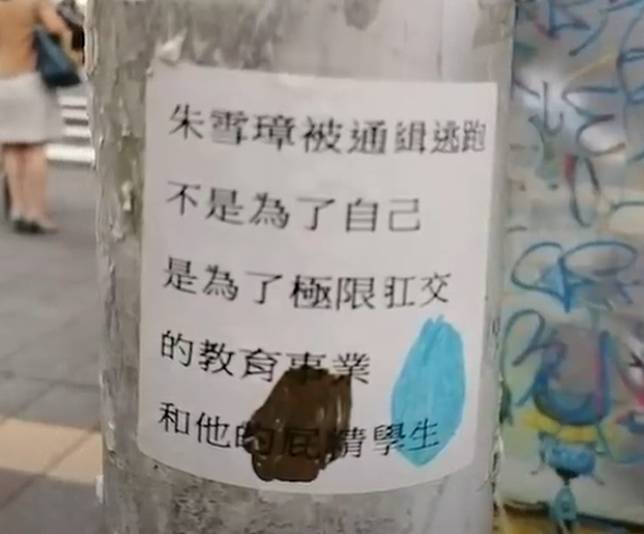 朱雪璋被通緝逃跑
不是為了自己
是為了極限肛交
的教育事業
和他的屁精學生